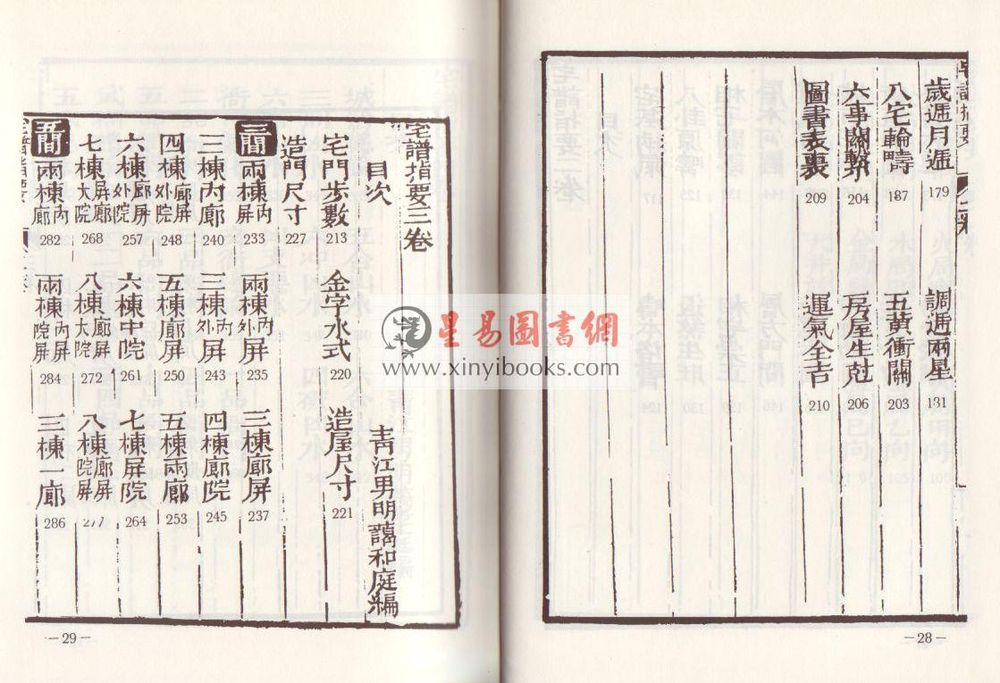 歲遞月遞 179 調遞兩星 181
八宅輪疇 187 五黃衝關 203
六事關繫 204 房屋生尅 206
圖書表裏 209 運氣全吉 210
—28—
宅譜指要三卷
目次 青江男明藹和庭編
宅門步數 213 金字水式 220 造屋尺寸 221
造門尺寸 227
三間 兩棟內屏 233 兩棟內外屏 235 三棟廊屏 237
三棟內廊 240 三棟內外屏 243 四棟廊院 245
四棟廊屏外院 248 五棟廊屏 250 五棟兩廊 253
六棟廊屏外院 257 六棟中院 261 七棟屏院 264
七棟屏廊大院 268 八棟廊屏大院 272 八棟廊屏院屏 277
五間 兩棟內廊 282 兩棟內屏院屏 284 三棟一廊 286
—29—
星易圖書網
www.xinyibooks.com